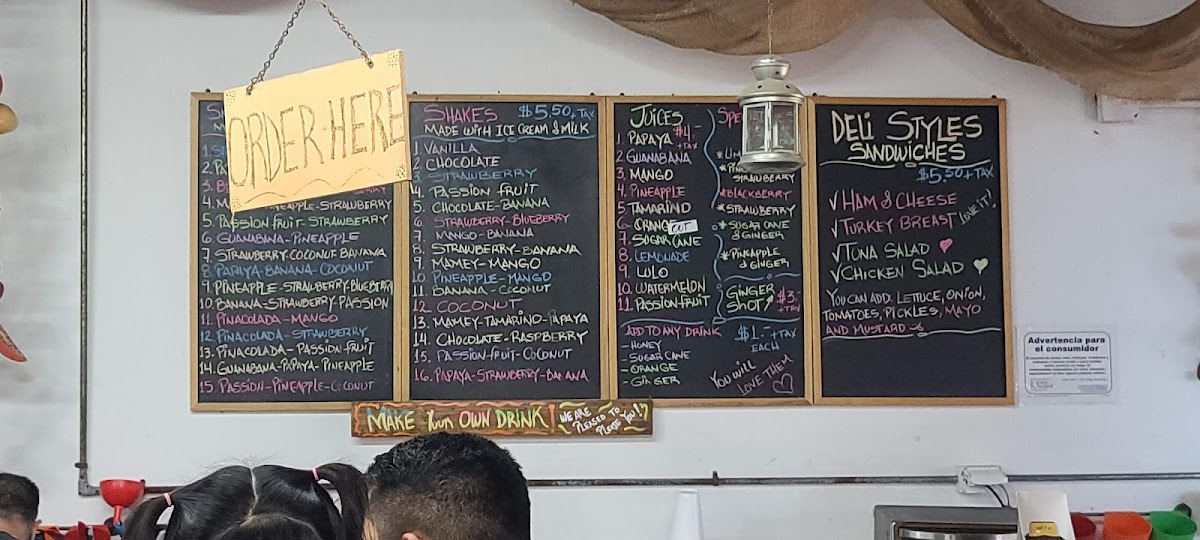 ORDER HERE
5. PASSION FRUIT-STRAWBERRY
6. GUANABANA-PINEAPPLE
7. STRAWBERRY-COCONUT BANANA
8. PAPAYA-BANANA-COCONUT
9. PINEAPPLE-STRAWBERRY-BLUEBERRY
10. BANANA-STRAWBERRY-PASSION
11. PINACOLADA-MANGO
12. PINACOLADA-STRAWBERRY
13. PINACOLADA-PASSION FRUIT
14. GUANABANA-PAPAYA-PINEAPPLE
15 PASSION-PINEAPPLE-COCONUT
SHAKES $5.50+TAX
MADE WITH ICE CREAM & MILK
1. VANILLA
2. CHOCOLATE
3. STRAWBERRY
4. PASSION FRUIT
5. CHOCOLATE-BANANA
6. STRAWBERRY-BLUEBERRY
7. MANGO-BANANA
8. STRAWBERRY-BANANA
9. MAMEY-MANGO
10. PINEAPPLE-MANGO
11. BANANA-COCONUT
12. COCONUT
13. MAMEY-TAMARINO-PAPAYA
14. CHOCOLATE-RASPBERRY
15. PASSION-FRUIT-COCONUT
16. PAPAYA-STRAWBERRY-BANANA
JUICES
$4.- +TAX
1. PAPAYA
2. GUANABANA
3. MANGO
4. PINEAPPLE
5. TAMARIND
6. ORANG OUT
7. SUGAR CANE
8. LEMONADE
9. LULO
10. WATERMELON
11. PASSION-FRUIT
STRAWBERRY
*BLACKBERRY
*STRAWBERRY
*SUGAR CANE
& GINGER
*PINEAPPLE
& GINGER
GINGER
SHOT $3.- +TAX
ADD TO ANY DRINK $1.- +TAX
EACH
- HONEY
- SUGAR CANE
- ORANGE
- GINGER
YOU WILL
LOVE THEM
DELI STYLES
SANDWICHES
$5.50+TAX
√ HAM & CHEESE
√ TURKEY BREAST LOVE IT!
√ TUNA SALAD
√ CHICKEN SALAD
YOU CAN ADD: LETTUCE, ONION,
TOMATOES, PICKLES, MAYO
AND MUSTARD
MAKE YOUR OWN DRINK
WE ARE
PLEASED TO
PLEASE YOU!
Advertencia para
el consumidor